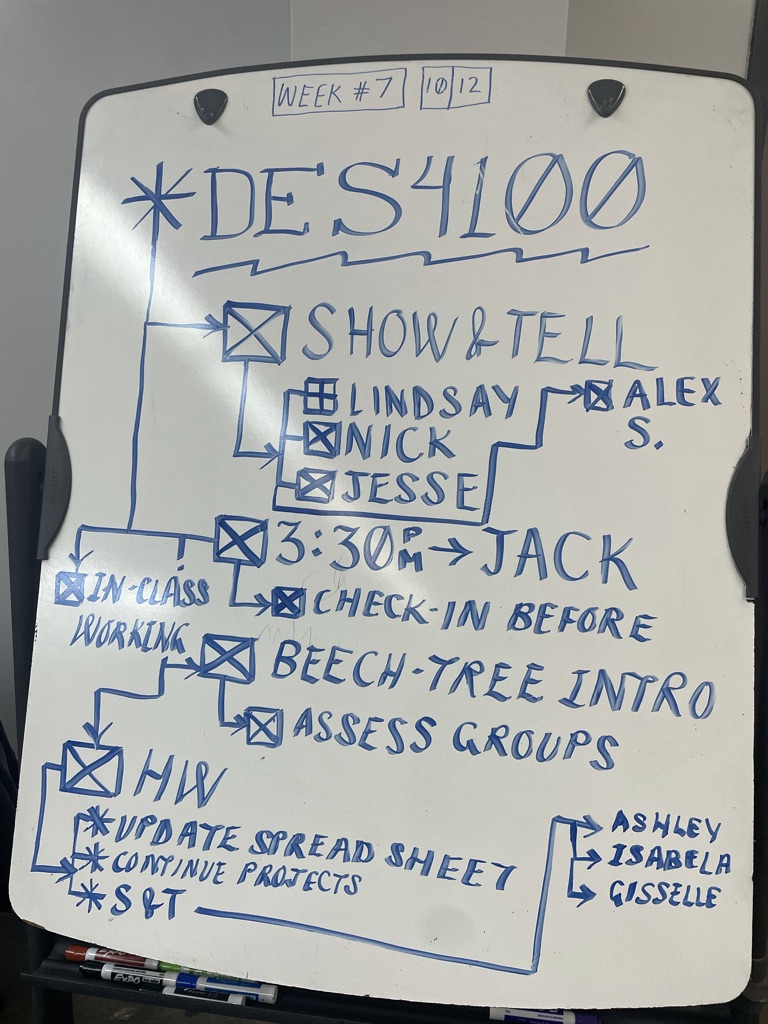 WEEK #7 10 12
*DES4100
SHOW & TELL
LINDSAY
NICK
JESSE
ALEX
S.
3:30PM → JACK
IN-CLASS
WORKING
CHECK-IN BEFORE
BEECH-TREE INTRO
ASSESS GROUPS
HW
* UPDATE SPREAD SHEET
* CONTINUE PROJECTS
* S&T
ASHLEY
ISABELA
GISSELLE
EXPO